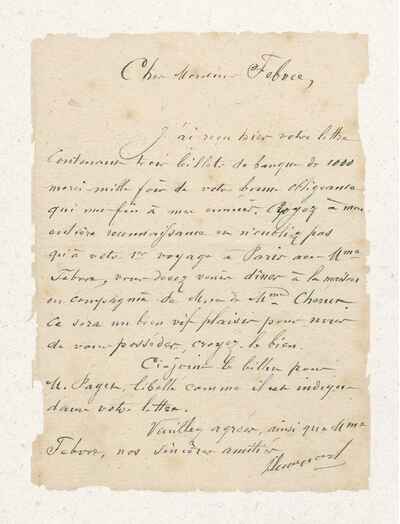 Cher Monsieur Febvre,
J'ai reçu hier votre lettre
contenant trois billets de banque de 1000
merci mille fois de votre bonne obligeance
qui met fin à mes ennuis. Croyez à mon
entière reconnaissance et n'oubliez pas
qu'à votre 1er voyage à Paris avec Mme
Febvre, vous devez venir dîner à la maison
en compagnie de M. et de Mme
Ce sera un bien vif plaisir pour nous
de vous posséder, croyez le bien.
Ci-joint le billet pour
M. Paget, libellé comme il est indiqué
dans votre lettre.
Veuillez agréer, ainsi que Mme
Febvre, nos sincères amitiés